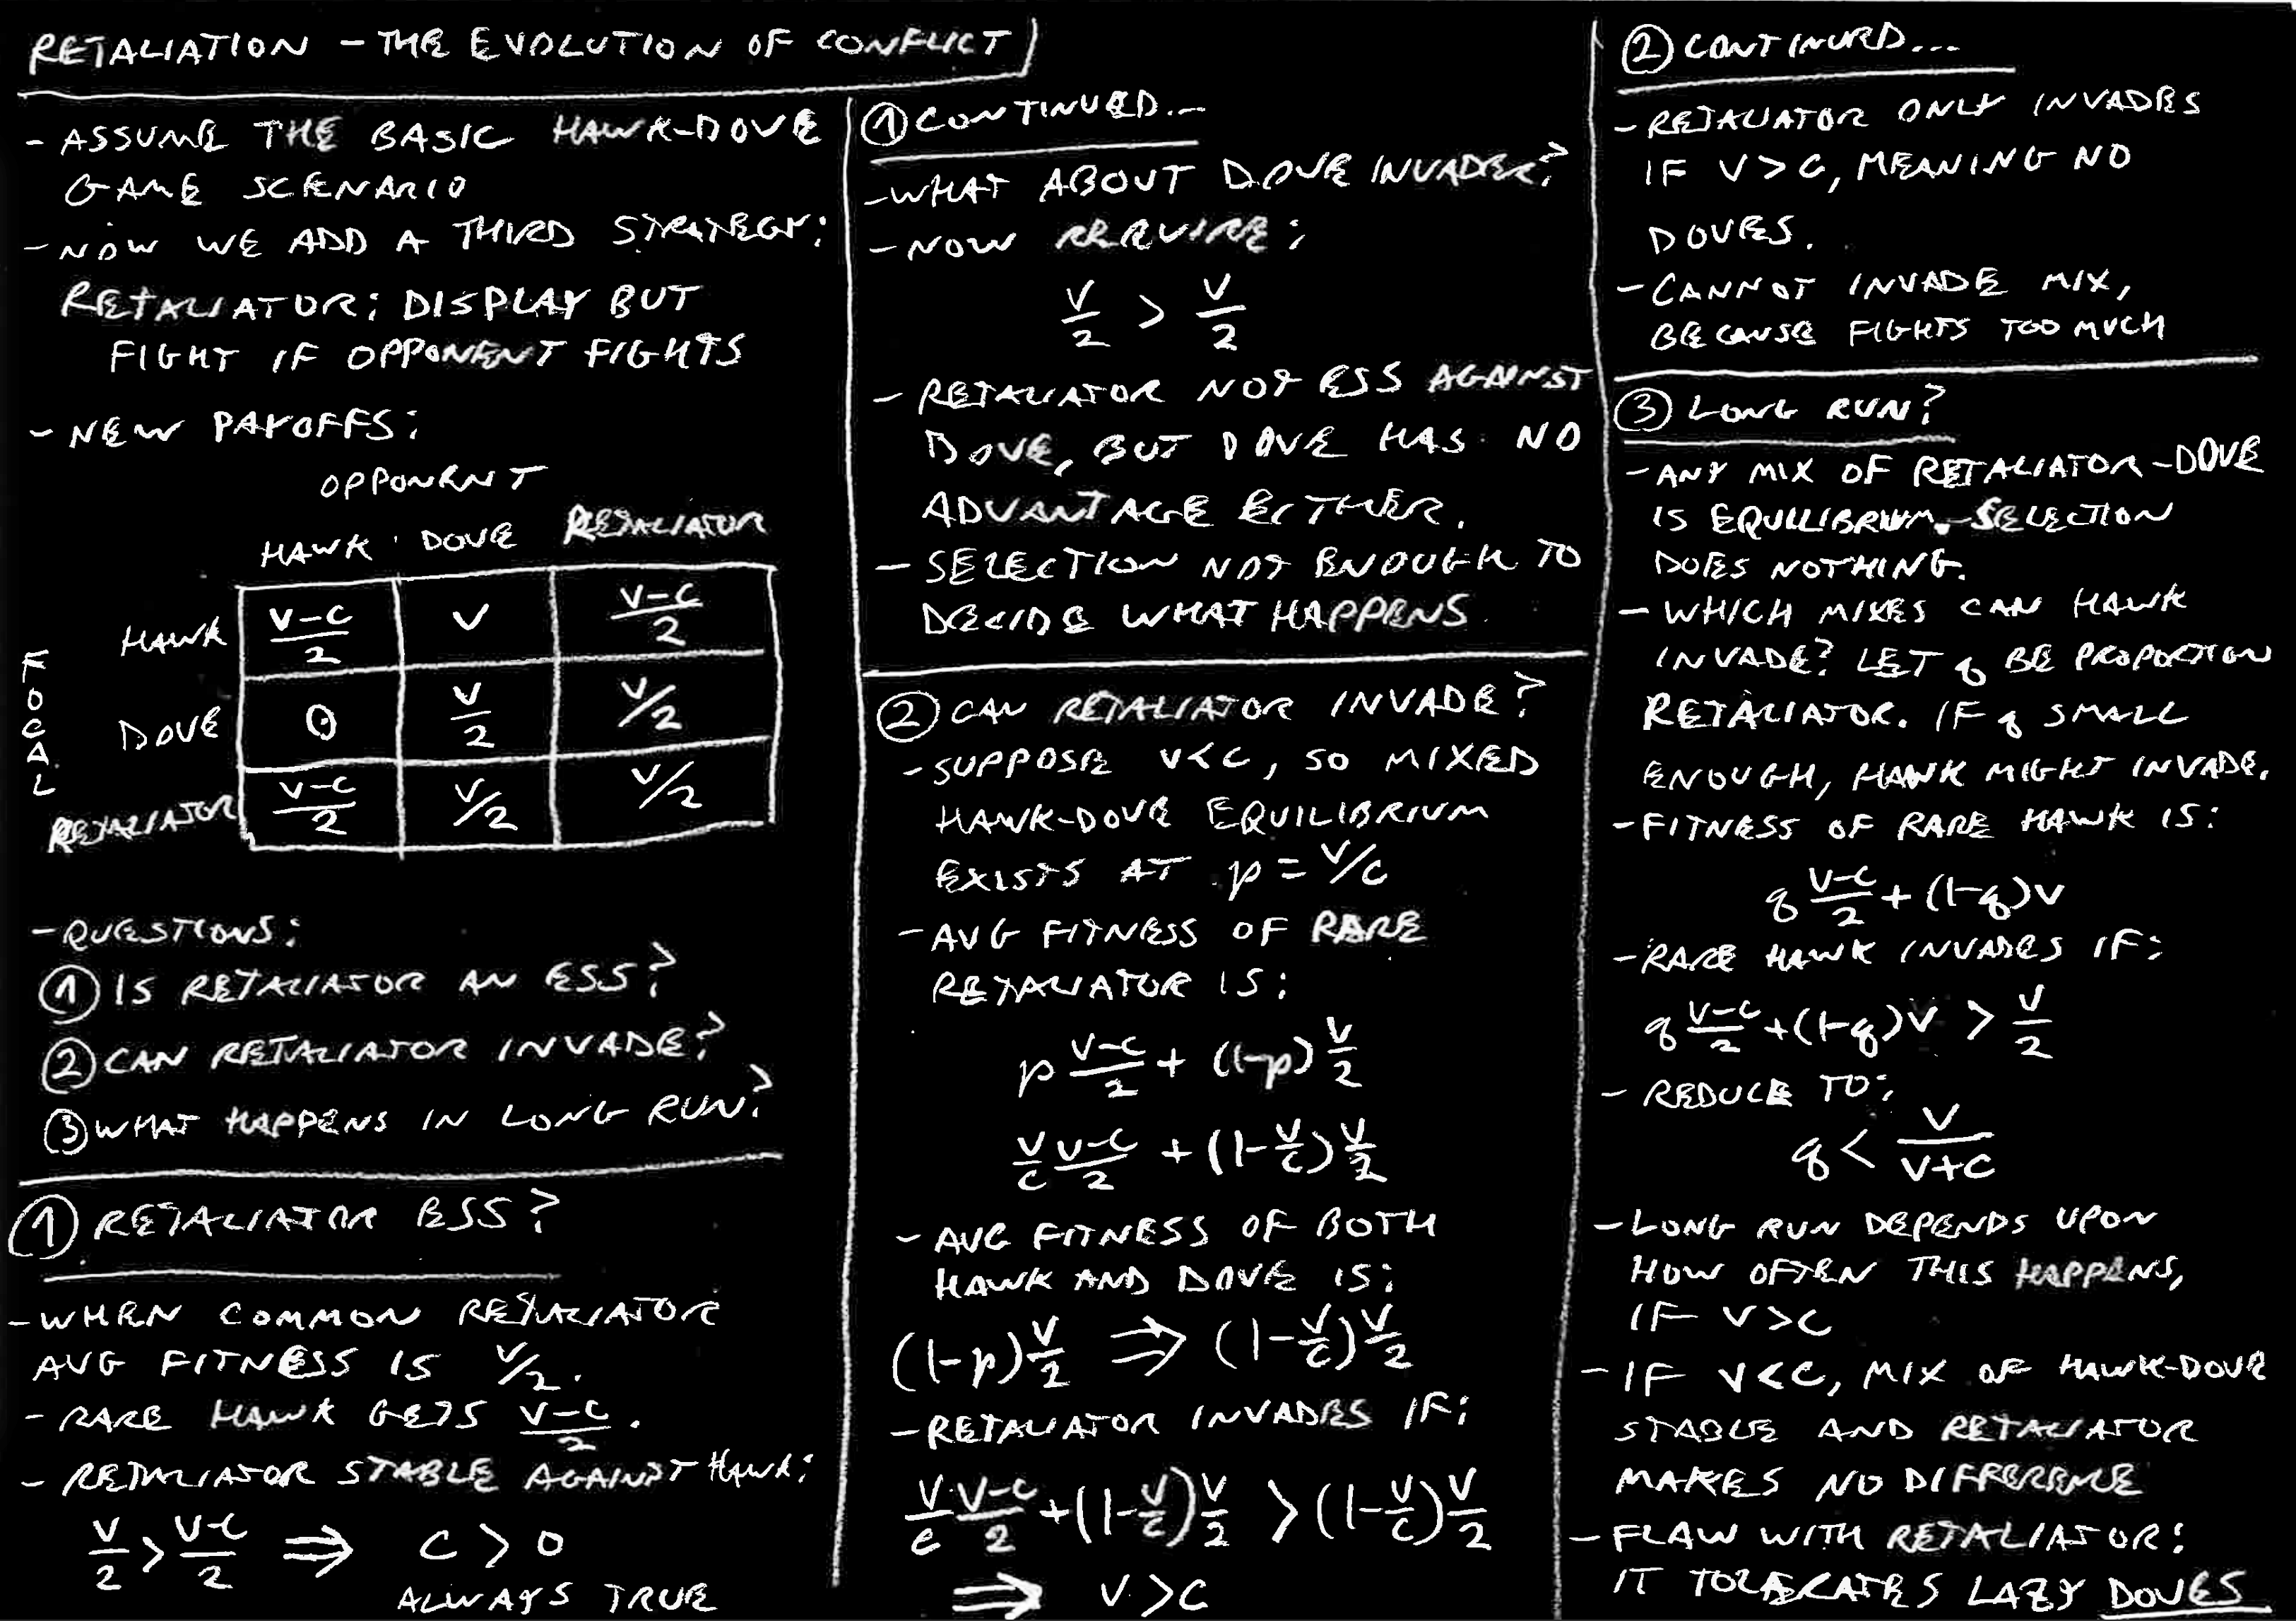 RETALIATION - THE EVOLUTION OF CONFLICT
- ASSUME THE BASIC HAWK-DOVE
GAME SCENARIO
- NOW WE ADD A THIRD STRATEGY:
RETALIATOR: DISPLAY BUT
FIGHT IF OPPONENT FIGHTS
- NEW PAYOFFS:
OPPONENT
HAWK DOVE RETALIATOR
FOCAL
HAWK (V-C)/2 V (V-C)/2
DOVE 0 V/2 V/2
RETALIATOR (V-C)/2 V/2 V/2
- QUESTIONS:
① IS RETALIATOR AN ESS?
② CAN RETALIATOR INVADE?
③ WHAT HAPPENS IN LONG RUN?
① RETALIATOR ESS?
- WHEN COMMON RETALIATOR
AVG FITNESS IS V/2.
- RARE HAWK GETS (V-C)/2.
- RETALIATOR STABLE AGAINST HAWK:
V/2 > (V-C)/2 ⇒ C > 0
ALWAYS TRUE
① CONTINUED...
- WHAT ABOUT DOVE INVADER?
- NOW REQUIRE:
V/2 > V/2
- RETALIATOR NOT ESS AGAINST
DOVE, BUT DOVE HAS NO
ADVANTAGE EITHER.
- SELECTION NOT ENOUGH TO
DECIDE WHAT HAPPENS.
② CAN RETALIATOR INVADE?
- SUPPOSE V<C, SO MIXED
HAWK-DOVE EQUILIBRIUM
EXISTS AT p = V/C
- AVG FITNESS OF RARE
RETALIATOR IS:
p (V-C)/2 + (1-p) V/2
V/C (V-C)/2 + (1-V/C) V/2
- AVG FITNESS OF BOTH
HAWK AND DOVE IS:
(1-p) V/2 ⇒ (1-V/C) V/2
- RETALIATOR INVADES IF:
V/C (V-C)/2 + (1-V/C) V/2 > (1-V/C) V/2
⇒ V>C
② CONTINUED...
- RETALIATOR ONLY INVADES
IF V>C, MEANING NO
DOVES.
- CANNOT INVADE MIX,
BECAUSE FIGHTS TOO MUCH
③ LONG RUN?
- ANY MIX OF RETALIATOR-DOVE
IS EQUILIBRIUM. SELECTION
DOES NOTHING.
- WHICH MIXES CAN HAWK
INVADE? LET q BE PROPORTION
RETALIATOR. IF q SMALL
ENOUGH, HAWK MIGHT INVADE.
- FITNESS OF RARE HAWK IS:
q (V-C)/2 + (1-q)V
- RARE HAWK INVADES IF:
q (V-C)/2 + (1-q)V > V/2
- REDUCE TO:
q < V/(V+C)
- LONG RUN DEPENDS UPON
HOW OFTEN THIS HAPPENS,
IF V>C
- IF V<C, MIX OF HAWK-DOVE
STABLE AND RETALIATOR
MAKES NO DIFFERENCE
- FLAW WITH RETALIATOR:
IT TOLERATES LAZY DOVES